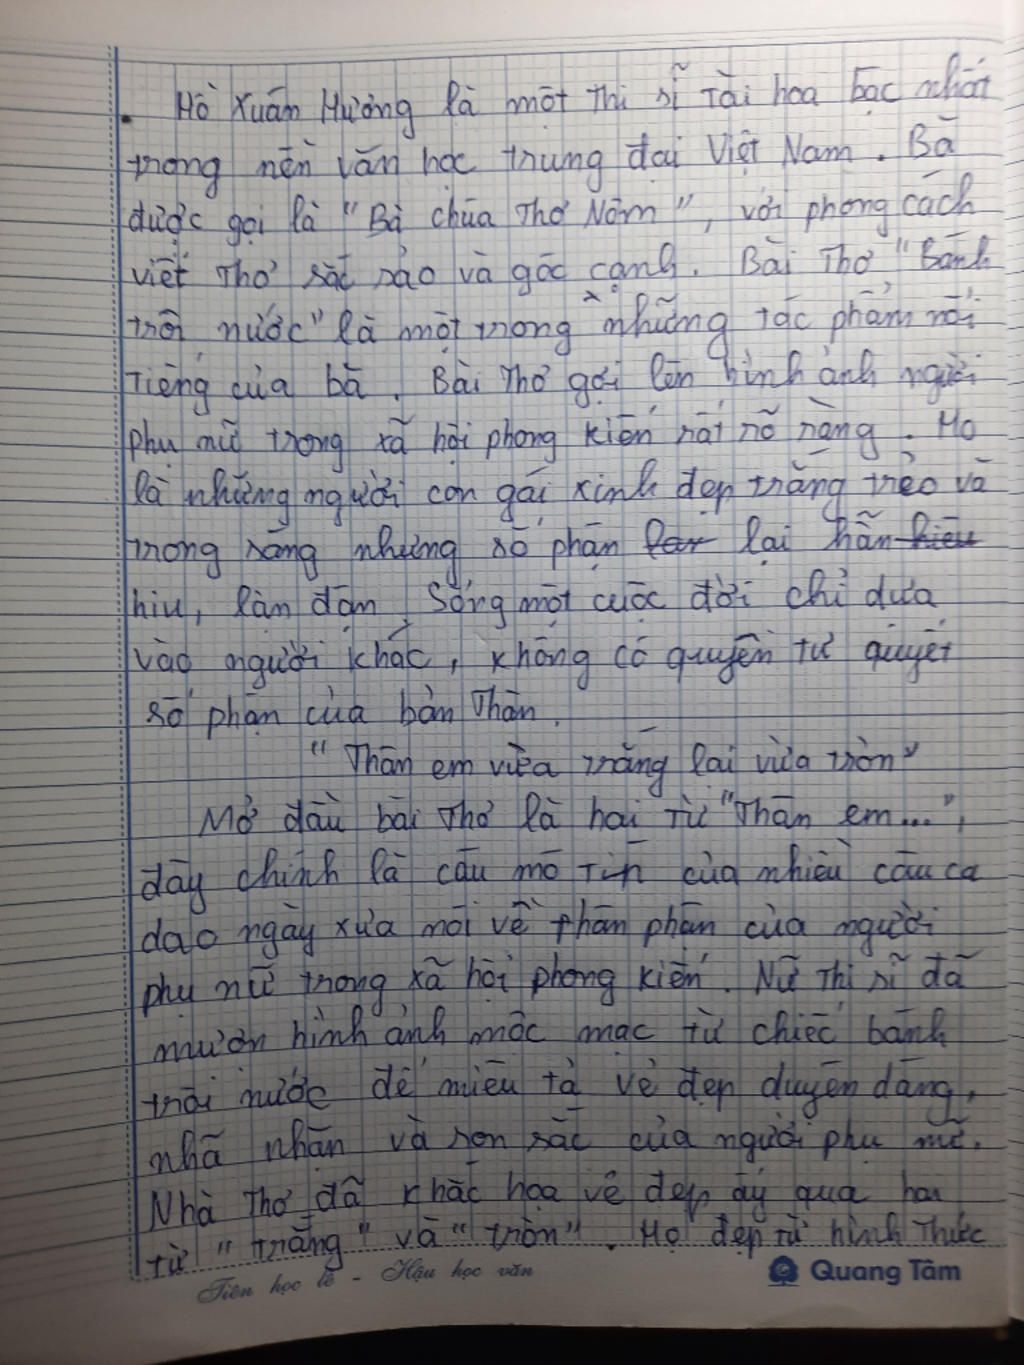 Hồ Xuân Hương là một thi sĩ tài hoa bạc nhất
trong nền văn học trung đại Việt Nam. Bà
được gọi là "Bà chúa thơ Nôm", với phong cách
viết thơ sắc sảo và góc cạnh. Bài thơ "Bánh
trôi nước" là một trong những tác phẩm nổi
tiếng của bà. Bài thơ gợi lên hình ảnh người
phụ nữ trong xã hội phong kiến rất rõ ràng. Họ
là những người con gái xinh đẹp trắng trẻo và
trong sáng nhưng số phận lại hẩn
hiu, lận đận. Sống một cuộc đời chỉ dựa
vào người khác, không có quyền tự quyết
số phận của bản thân.
"Thân em vừa trắng lại vừa tròn"
Mở đầu bài thơ là hai từ "Thân em...",
đây chính là câu mô típ của nhiều câu ca
dao ngày xưa nói về thân phận của người
phụ nữ trong xã hội phong kiến. Nữ thi sĩ đã
mượn hình ảnh mộc mạc từ chiếc bánh
trôi nước để miêu tả vẻ đẹp duyên dáng,
nhã nhặn và son sắc của người phụ nữ.
Nhà thơ đã khắc họa vẻ đẹp ấy qua hai
từ "trắng" và "tròn". Họ đẹp từ hình thức
Tiên học lễ - Hậu học văn
Quang Tâm